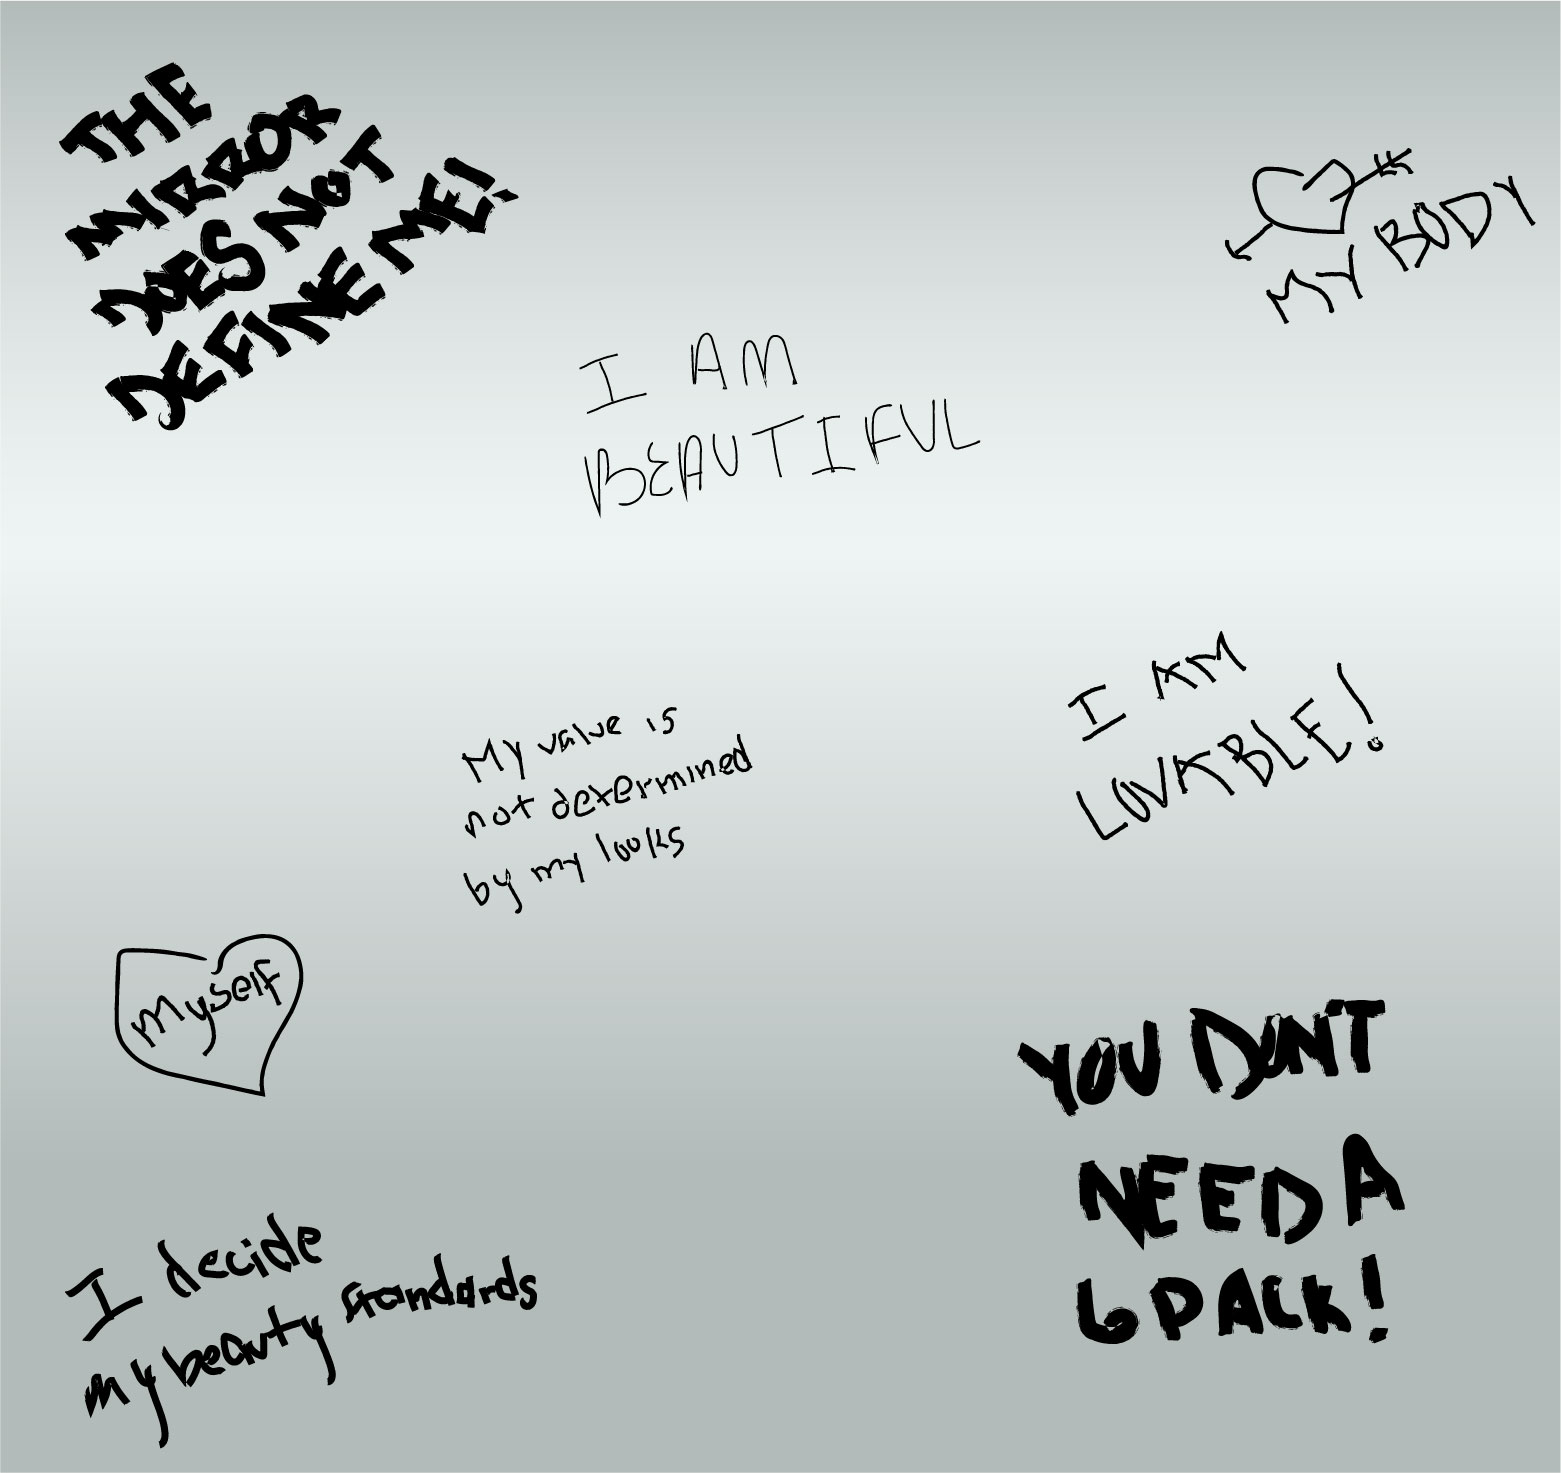 THE
MIRROR
DOES NOT
DEFINE ME!
MY BODY
I AM
BEAUTIFUL
I AM
LOVABLE!
My value is
not determined
by my looks
Myself
YOU DON'T
NEED A
6 PACK!
I decide
my beauty standards